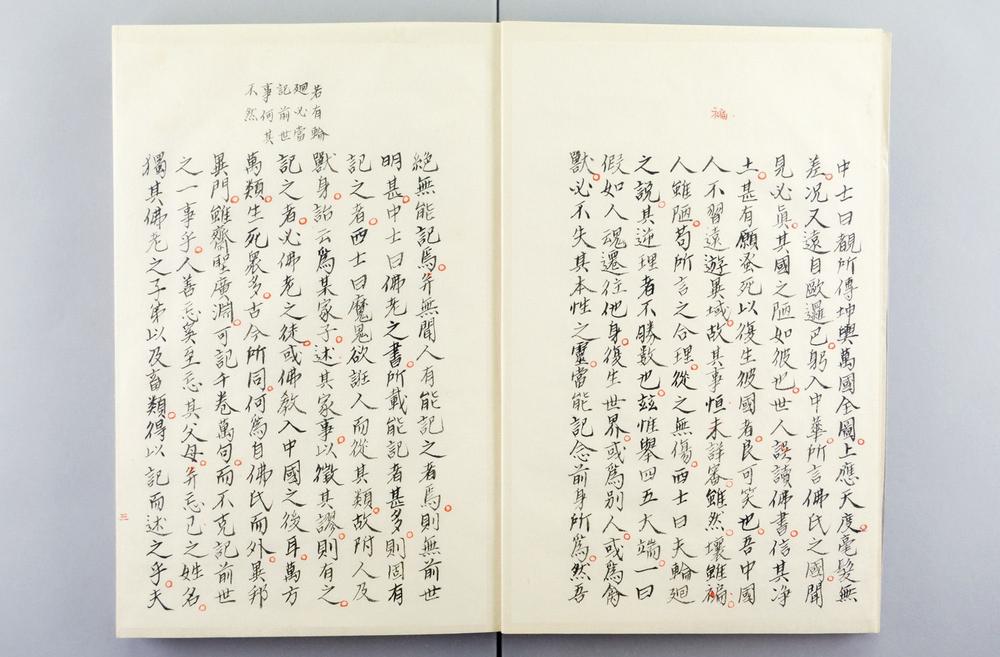 褊
中士曰觀所傳坤輿萬國全圖上應天度毫髮無
差况又遠自歐邏巴躬入中華所言佛氏之國聞
見必眞其國之陋如彼也世人誤讀佛書信其净
土甚有願蚤死以復生彼國者良可笑也吾中國
人不習遠遊異域故其事恒未詳審雖然壤雖褊
人雖陋苟所言之合理從之無傷西士曰夫輪廻
之說其逆理者不勝數也兹惟舉四五大端一曰
假如人魂遷徃他身復生世界或爲別人或爲禽
獸必不失其本性之靈當能記念前身所爲然吾
若有輪
廻必當
記前世
事何其
不然
絶無能記焉并無聞人有能記之者焉則無前世
明甚中士曰佛老之書所載能記者甚多則固有
記之者西士曰魔鬼欲誑人而從其類故附人及
獸身詒云爲某家子述其家事以徵其謬則有之
記之者必佛老之徒或佛敎入中國之後耳萬方
萬類生死衆多古今所同何爲自佛氏而外異邦
異門雖齊聖廣淵可記千卷萬句而不克記前世
之一事乎人善忘奚至忘其父母并忘己之姓名
獨其佛老之子弟以及畜類得以記而述之乎夫
三